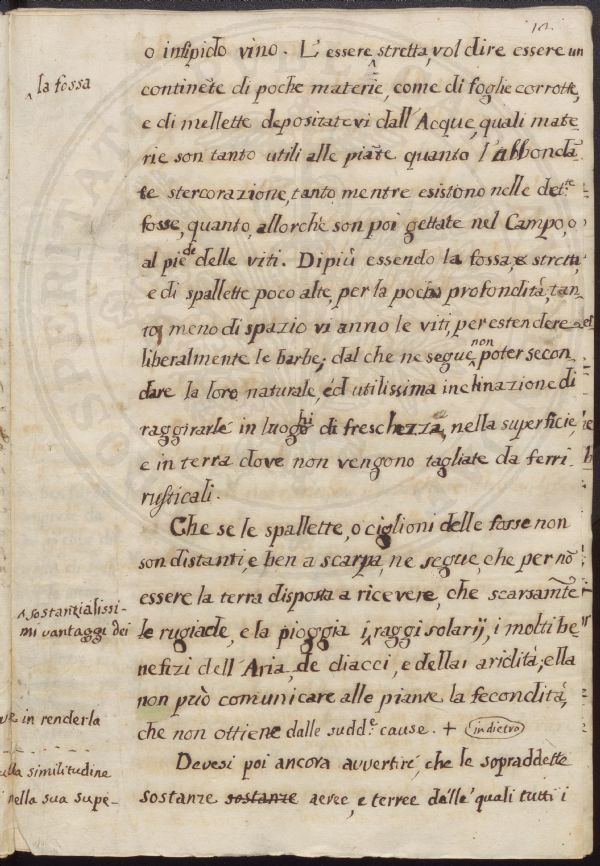 12.
o insipido vino. L'essere ^ stretta, vol dire essere un
^ la fossa
continēte di poche materie, come di foglie corrotte,
e di mellette depositatevi dall'Acque, quali mate
rie son tanto utili alle piāte quanto l'abbondā
te stercorazione, tanto mentre esistono nelle det.te
fosse, quanto, allorchè son poi gettate nel Campo, o
al piede delle viti. Dipiù essendo la fossa, e stretta,
e di spallette poco alte, per la poca profondità, tan
to, meno di spazio vi anno le viti, per estendere
liberalmente le barbe; dal che ne segue ^ non poter secon
dare la loro naturale, ed utilissima inclinazione di
raggirarle in luoghi di freschezza, nella superficie,
e in terra dove non vengono tagliate da ferri
rusticali.
Che se le spallette, o ciglioni delle fosse non
son distanti, e ben a scarpa, ne segue, che per nō
essere la terra disposta a ricevere, che scarsam̄te
^ sostanzialissi-
mi vantaggi dei
le rugiade, e la pioggia i ^ raggi solarij, i molti be
nefizi dell'Aria, de diacci, e della aridità; ella
non può comunicare alle piante la fecondità,
che non ottiene dalle sudd.e cause. + indietro
in renderla
Devesi poi ancora avvertire, che le sopraddette
similitudine
nella sua supe-
sostanze sostanze aeree, e terree delle quali tutti i